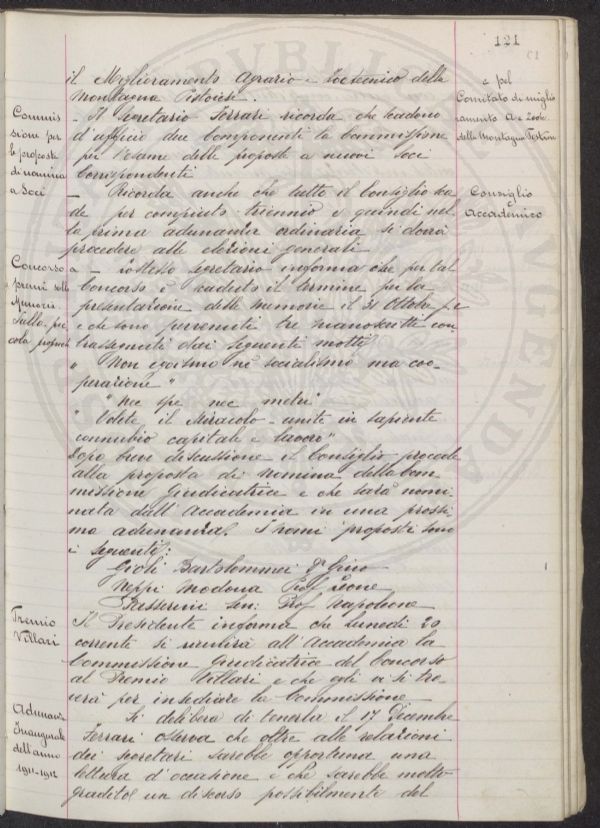 121
il Miglioramento Agrario-Zootecnico della
Montagna Pistoiese.
e pel
Comitato di miglio
ramento A e Zootec
della Montagna Pistoiese
Commis
sione per
le proposte
di nomina
a Soci
- Il Segretario Ferrari ricorda che scadono
d'ufficio due componenti la Commissione
per l'esame delle proposte a nuovi Soci
Corrispondenti
Consiglio
Accademico
- Ricorda anche che tutto il Consiglio sca
de per compiuto triennio e quindi nel
la prima adunanza ordinaria si dovrà
procedere alle elezioni generali
Concorso a
premi sulle
Memorie
sulla pic
cola proprietà
- Lo stesso segretario informa che pel tal
Concorso è caduto il termine per la
presentazione delle memorie il 31 Ottobre p.p
e che sono pervenuti tre manoscritti con
trassegnati dai seguenti motti
" Non egoismo nè socialismo ma coo-
perazione "
" Nec spe nec metu "
" Volete il Miracolo - unite in sapiente
connubio capitale e lavoro"
Dopo breve discussione il Consiglio procede
alla proposta di nomina della Com
missione Giudicatrice e che sarà nomi
nata dall'Accademia in una prossi
ma adunanza. I nomi proposti sono
i seguenti:
Gioli Bartolommei Dr Gino
Neppi Modona Prof Leone
Passerini Sen: Prof Napoleone
Premio
Villari
Il Presidente informa che Lunedì 20
corrente si riunirà all'Accademia la
Commissione Giudicatrice del Concorso
al Premio Villari e che egli vi si tro
verà per insediare la Commissione
Adunanza
Inaugurale
dell'anno
1911-1912
Si delibera di tenerla il 17 Dicembre
Ferrari osserva che oltre alle relazioni
dei segretari sarebbe opportuna una
lettura d'occasione e che sarebbe molto
gradito un discorso possibilmente del